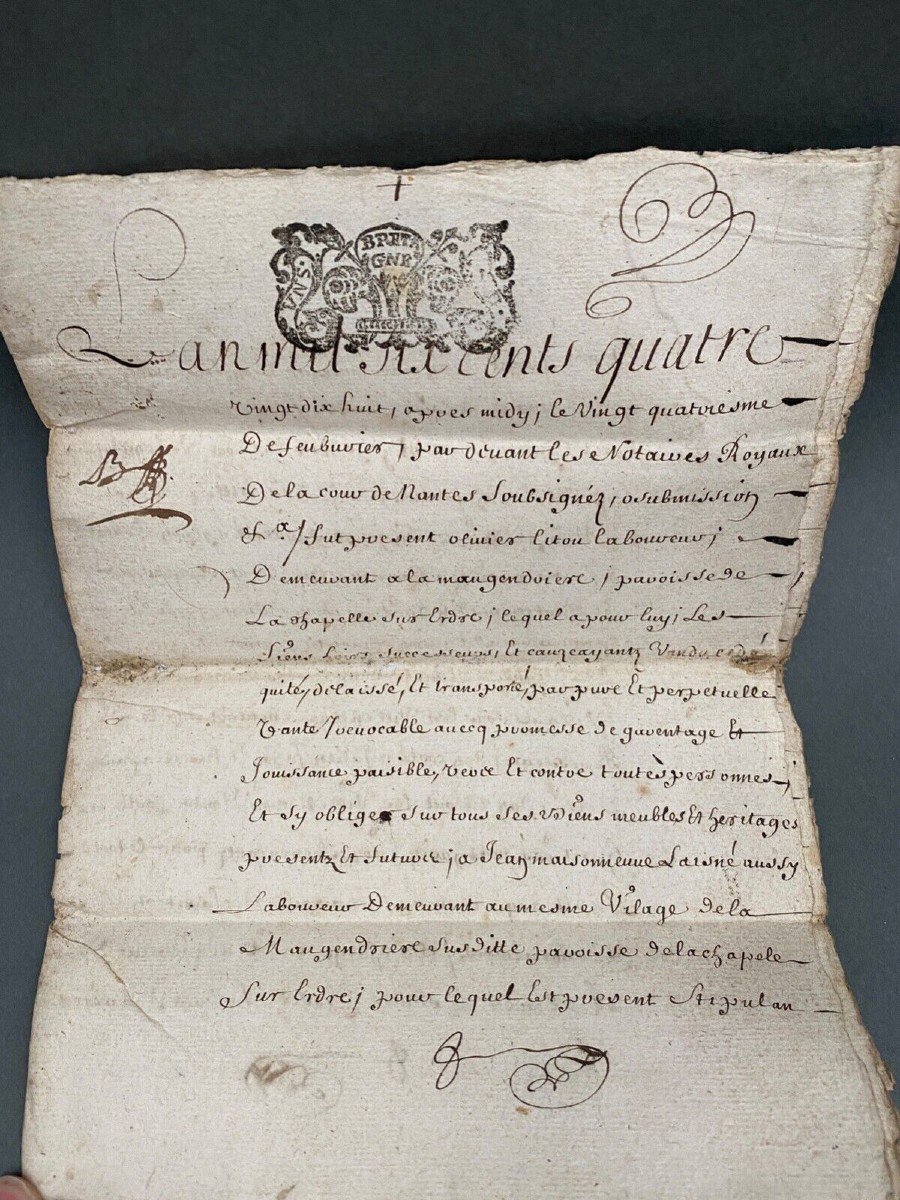 BRETA
GNE
VNS.
L'an mil six cents quatre
Vingt dix huit, apres midy; le Vingt quatriesme
De feubvrier, par devant les Notaires Royaux
De la cour de Nantes Soubsignéz, o submission
& a/ fut present olivier litou laboureur;
Demeurant a la maugendriere, paroisse de
La chapelle sur Erdre; lequel a pour luy, Les
Siens hoirs successeurs, Et cauzeayantz Vandu, cedé
quité, delaissé, Et transporté, par pure Et perpetuelle
Vante Irevocable avecq promesse de garentage Et
Jouissance paisible, vers Et contre toutes personnes
Et sy obliger sur tous ses biens meubles Et heritages
presentz Et future; a Jean maisonneuve Laisné aussy
Laboureur Demeurant au mesme Vilage de la
Maugendriere susditte paroisse de la chapele
Sur Erdre; pour lequel Est present Stipulan